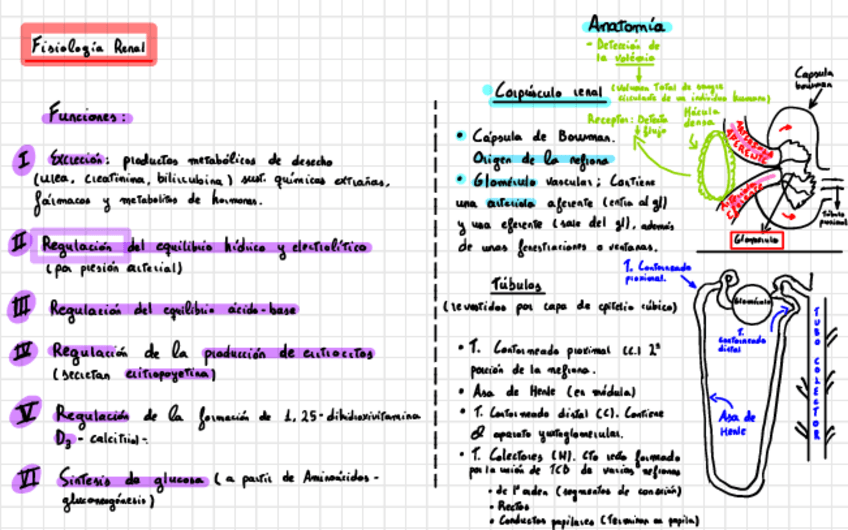 Fisiología Renal
Funciones:
I Excreción: productos metabólicos de desecho
(urea, creatinina, bilirrubina) sust. químicas extrañas,
fármacos y metabolitos de hormonas.
II Regulación del equilibrio hídrico y electrolítico
(por presión arterial)
III Regulación del equilibrio ácido-base
IV Regulación de la producción de eritrocitos
(secretan eritropoyetina)
V Regulación de la formación de 1,25-dihidroxivitamina
D3 - calcitriol-.
VI Síntesis de glucosa (a partir de Aminoácidos -
gluconeogénesis)
Anatomía
- Detección de
la volemia
(Volumen Total de sangre
circulante de un individuo humano)
Receptor: Detecta
flujo
Mácula
densa
Corpúsculo renal
• Cápsula de Bowman.
Origen de la nefrona
• Glomérulo vascular; Contiene
una arteriola aferente (entra al gl)
y una eferente (sale del gl), además
de unas fenestraciones o ventanas.
Capsula
bowman
ARTERIOLA
AFERENTE
ARTERIOLA
Túbulo
proximal
Glomerulo
Túbulos
(revestidos por capa de epitelio cúbico)
• T. Contorneado proximal (C.) 2ª
porción de la nefrona.
• Asa de Henle (en médula)
• T. Contorneado distal (C). Contiene
el aparato yuxtaglomerular.
• T. Colectores (M). Cto recto formado
por la unión de TCD de varias nefronas
• de 1º orden (segmentos de conexión)
• Rectos
• Conductos papilares (Terminan en papila)
T. Contorneado
proximal.
Glomérulo
T.
Contorneado
distal
Asa de
Henle
TUBO COLECTOR